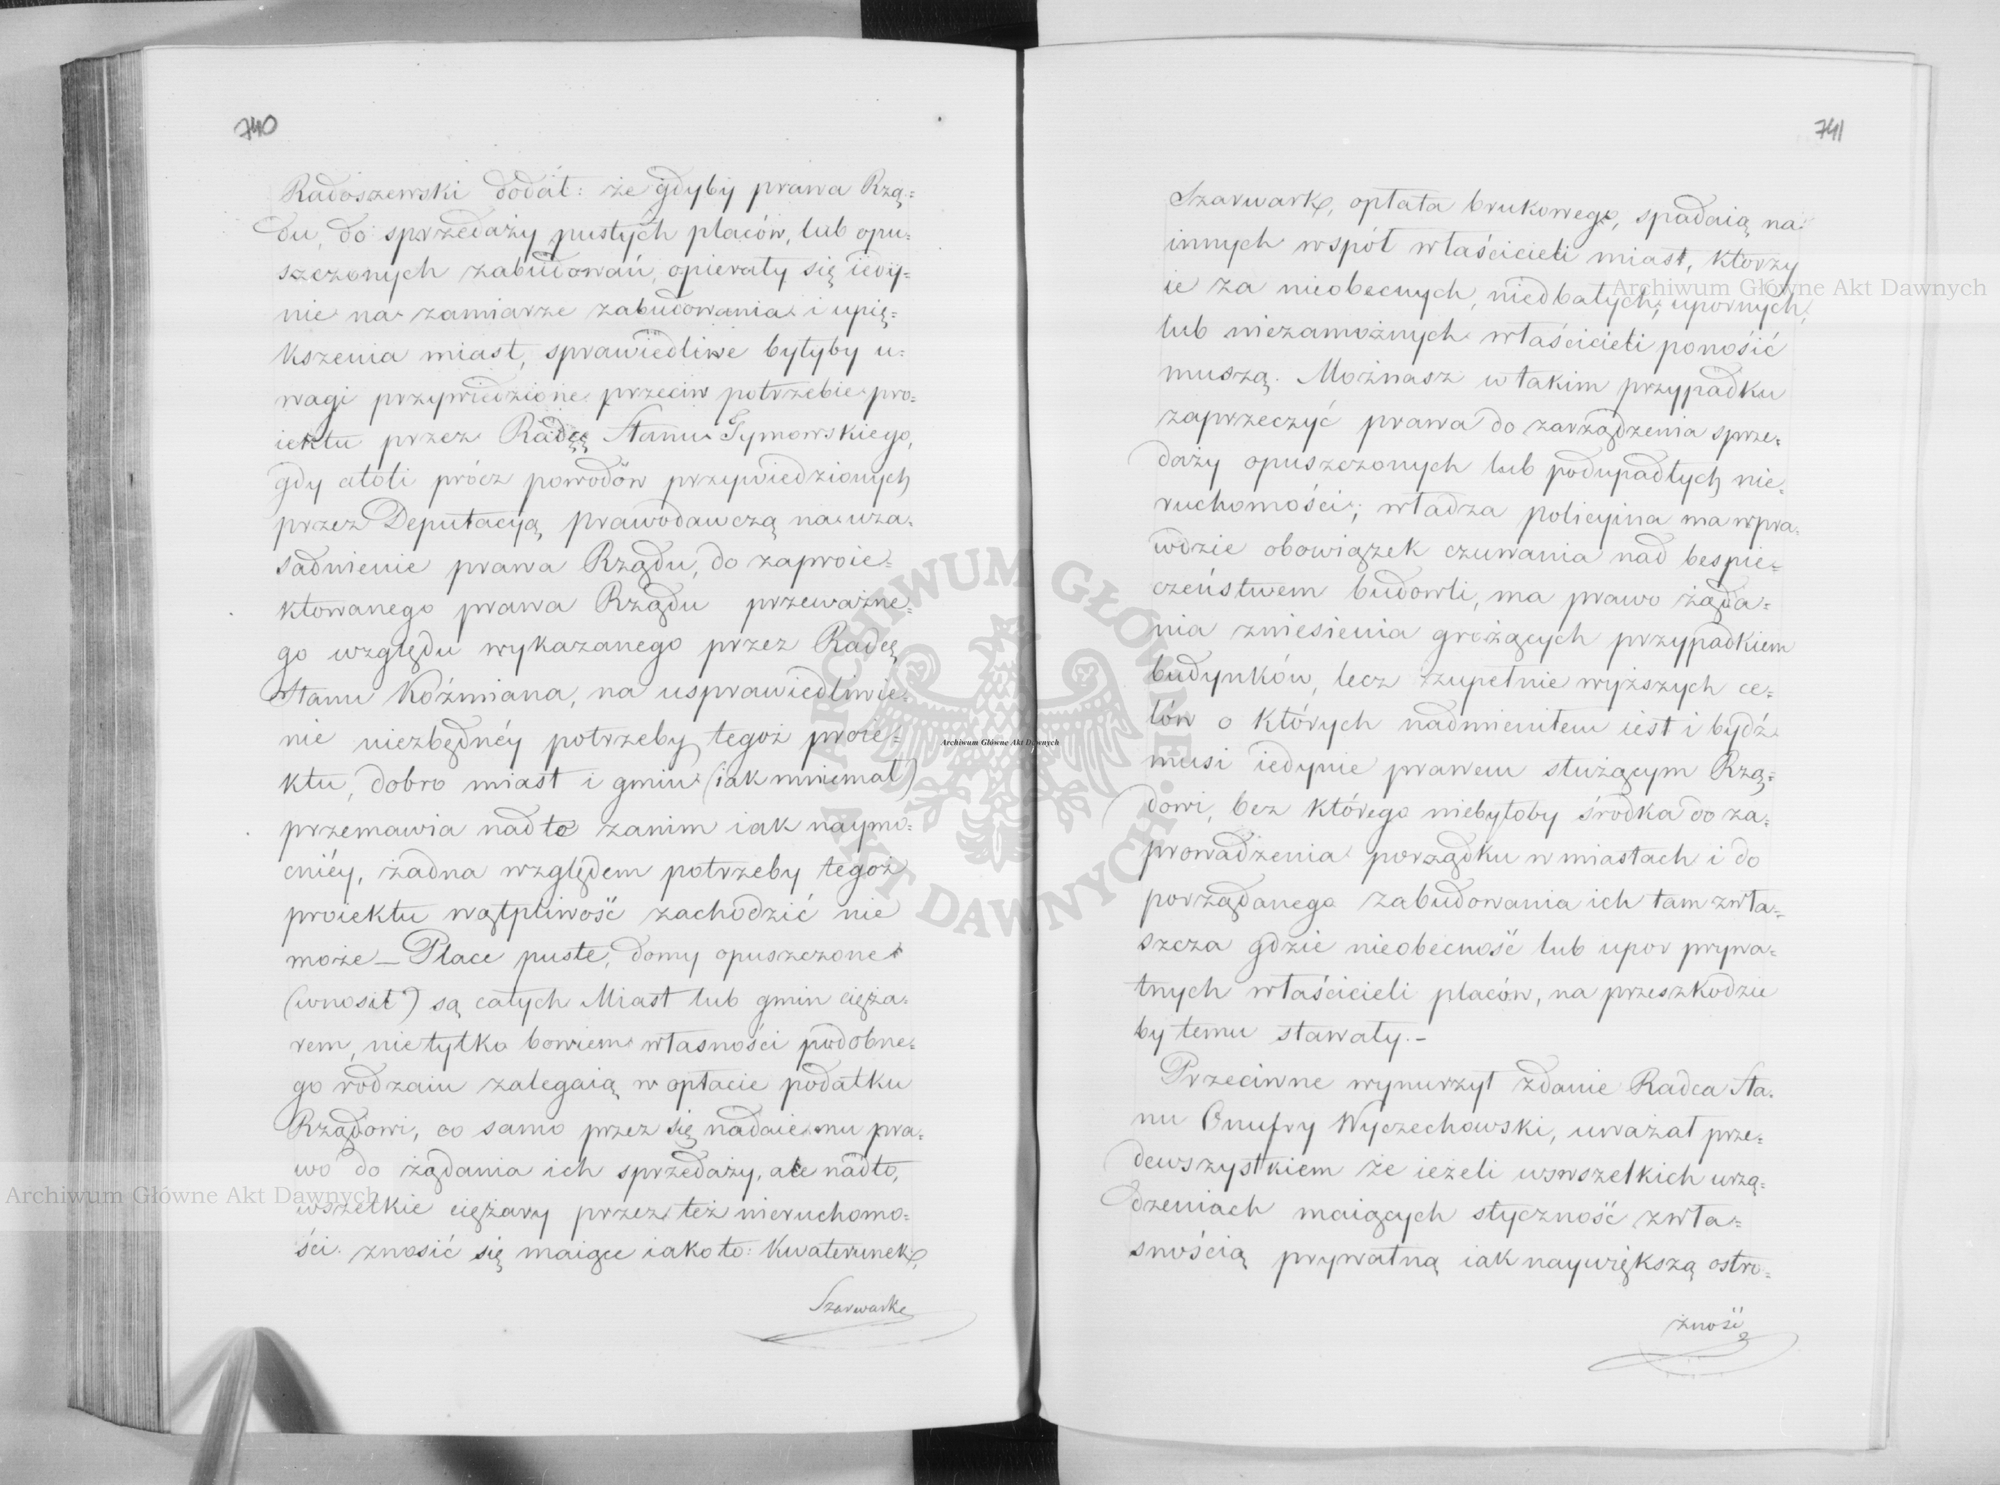 740
Radoszewski dodał: że gdyby prawa Rzą=
du, do sprzedaży pustych placów, lub opu=
szczonych zabudowań, opierały się iedy=
nie na zamiarze zabudowania i upię=
kszenia miast, sprawiedliwe byłyby u=
wagi przywiedzione przeciw potrzebie pro=
iektu przez Radcę Stanu Tymowskiego,
gdy atoli prócz powodów przywiedzionych
przez Deputacyą prawodawczą na uza=
sadnienie prawa Rządu, do zaproie=
ktowanego prawa Rządu przeważne=
go względu wykazanego przez Radcę
Stanu Koźmiana, na usprawiedliwie=
nie niezbędnéy potrzeby tegoż proie=
ktu, dobro miast i gmin (iak mniemał)
przemawia nadto zanim iak naymo=
cniéy, żadna względem potrzeby tegoż
proiektu wątpliwość zachodzić nie
może — Place puste, domy opuszczone
(wnosił) są całych Miast lub gmin cięża=
rem, nietylko bowiem własności podobne=
go rodzaiu zalegaią w opłacie podatku
Rządowi, co samo przez się nadaie mu pra=
wo do żądania ich sprzedaży, ale nadto,
wszelkie ciężary przez też nieruchomo=
ści znosić się maiące iako to: Kwaterunek,
Szarwark
741
Szarwark, opłata brukowego, spadaią na
innych współ właścicieli miast, którzy
ie za nieobecnych, niedbałych, upornych,
lub niezamożnych właścicieli ponosić
muszą. Możnasz w takim przypadku
zaprzeczyć prawa do zarządzenia sprze=
daży opuszczonych lub podupadłych nie=
ruchomości; władza policyina ma wpra=
wdzie obowiązek czuwania nad bespie=
czeństwem budowli, ma prawo żąda=
nia zniesienia grożących przypadkiem
budynków, lecz zupełnie wyższych ce=
lów o których nadmieniłem iest i bydź
musi iedynie prawem służącym Rzą=
dowi, bez którego niebyłoby środka do za=
prowadzenia porządku w miastach i do
porządanego zabudowania ich tam zwła=
szcza gdzie nieobecność lub upor prywa=
tnych właścicieli placów, na przeszkodzie
by temu stawały. –
Przeciwne wynurzył zdanie Radca Sta=
nu Onufry Wyczechowski, uważał prze=
dewszystkiem że ieżeli wswszelkich urzą=
dzeniach maiących styczność zwła=
snością prywatną iak naywiększą ostro=
żność
Archiwum Główne Akt Dawnych
Archiwum Główne Akt Dawnych
Archiwum Główne Akt Dawnych
ARCHIWUM GŁÓWNE AKT DAWNYCH